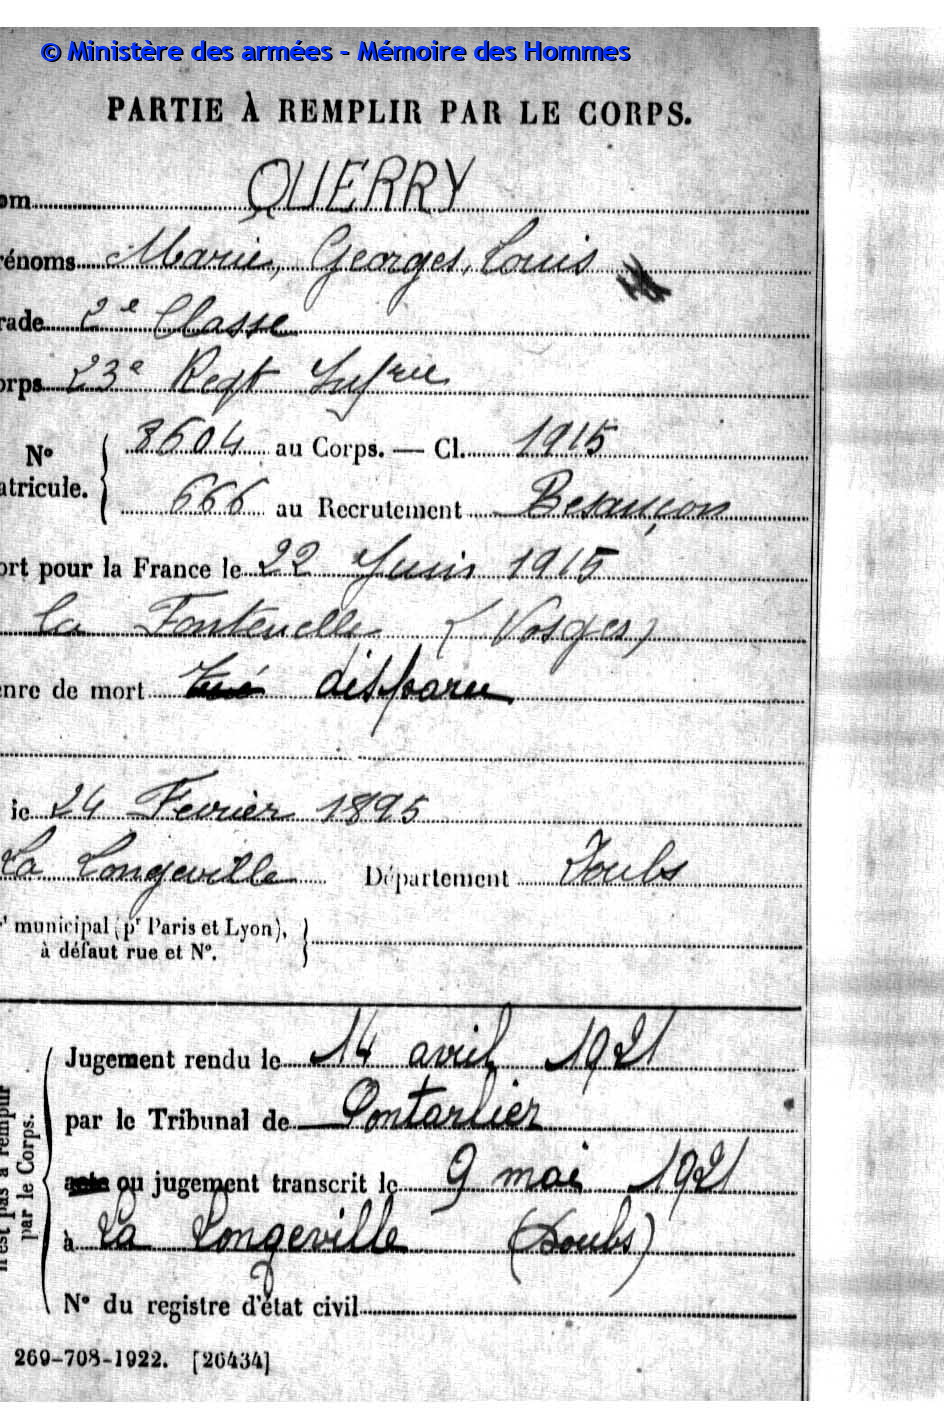 © Ministère des armées - Mémoire des Hommes
PARTIE À REMPLIR PAR LE CORPS.
om QUERRY
rénoms Marie, Georges, Louis
rade 2e Classe
orps 23e Regt Infrie
No
atricule.
8604 au Corps. — Cl. 1915
666 au Recrutement Besançon
ort pour la France le 22 Juin 1915
la Fontenelle (Vosges)
enre de mort tué disparu
le 24 Fevrier 1895
La Longeville Département Doubs
rt municipal (pr Paris et Lyon),
à défaut rue et No.
n'est pas à remplir
par le Corps.
Jugement rendu le 14 avril 1921
par le Tribunal de Pontarlier
acte ou jugement transcrit le 9 mai 1921
à La Longeville (Doubs)
No du registre d'état civil
269-708-1922. [26434]